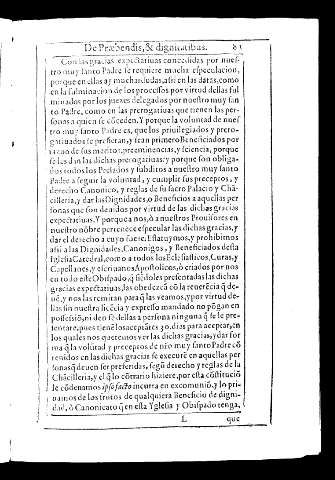 De Præbendis, & dignitatibus. 81
Con las gracias expectatiuas concedidas por nues-
tro muy santo Padre se requiere mucha especulacion,
porque en ellas ay muchas dudas, assi en las datas, como
en la fulminacion de los processos por virtud dellas ful
minados por los juezes delegados por nuestro muy san
to Padre, como en las prerrogatiuas que tienen las per-
sonas a quien se cōceden. Y porque la voluntad de nues
tro muy santo Padre es, que los priuilegiados y prero-
gatiuados se prefieran, y sean primero Beneficiados por
razon de sus meritos, preeminencias, y sciencia, porque
se les dan las dichas prerrogatiuas: y porque son obliga-
dos todos los Prelados y subditos a nuestro muy santo
Padre a seguir la voluntad, y cumplir sus preceptos, y
derecho Canonico, y reglas de su sacro Palacio y Chā-
cilleria, y dar las Dignidades, o Beneficios a aquellas per
sonas que son deuidos por virtud de las dichas gracias
expectatiuas. Y porque a nos, ò a nuestros Prouisores en
nuestro nōbre pertenece especular las dichas gracias, y
dar el derecho a cuyo fuere. Estatuymos, y prohibimos
assi a las Dignidades, Canonigos, y Beneficiados desta
Iglesia Catedral, como a todos los Eclesiasticos, Curas, y
Capellanes, y escriuanos Apostolicos, ò criados por nos
en todo este Obispado, q̄ siēdoles presentadas las dichas
gracias expectatiuas, las obedezcā cō la reuerēcia q̄ de-
uē, y nos las remitan para q̄ las veamos, y por virtud de-
llas sin nuestra licēcia y expresso mandado no pōgan en
possessiō, ni den se dellas a persona ninguna q̄ se le pre-
sentare, pues tienē los aceptātes 30. dias para aceptar, en
los quales nos queremos ver las dichas gracias, y dar for
ma q̄ la volūtad y preceptos de nrō muy santo Padre cō
tenidos en las dichas gracias se executē en aquellas per
sonas q̄ deuen ser preferidas, segū derecho y reglas de la
Chācilleria, y el q̄ lo cōtrario hiziere, por esta cōstitució
le cōdenamos ipso facto incurra en excomuniō, y lo pri-
uamos de los frutos de qualquiera Beneficio de digni-
dad, ò Canonicato q̄ en esta Yglesia y Obispado tenga,
L que